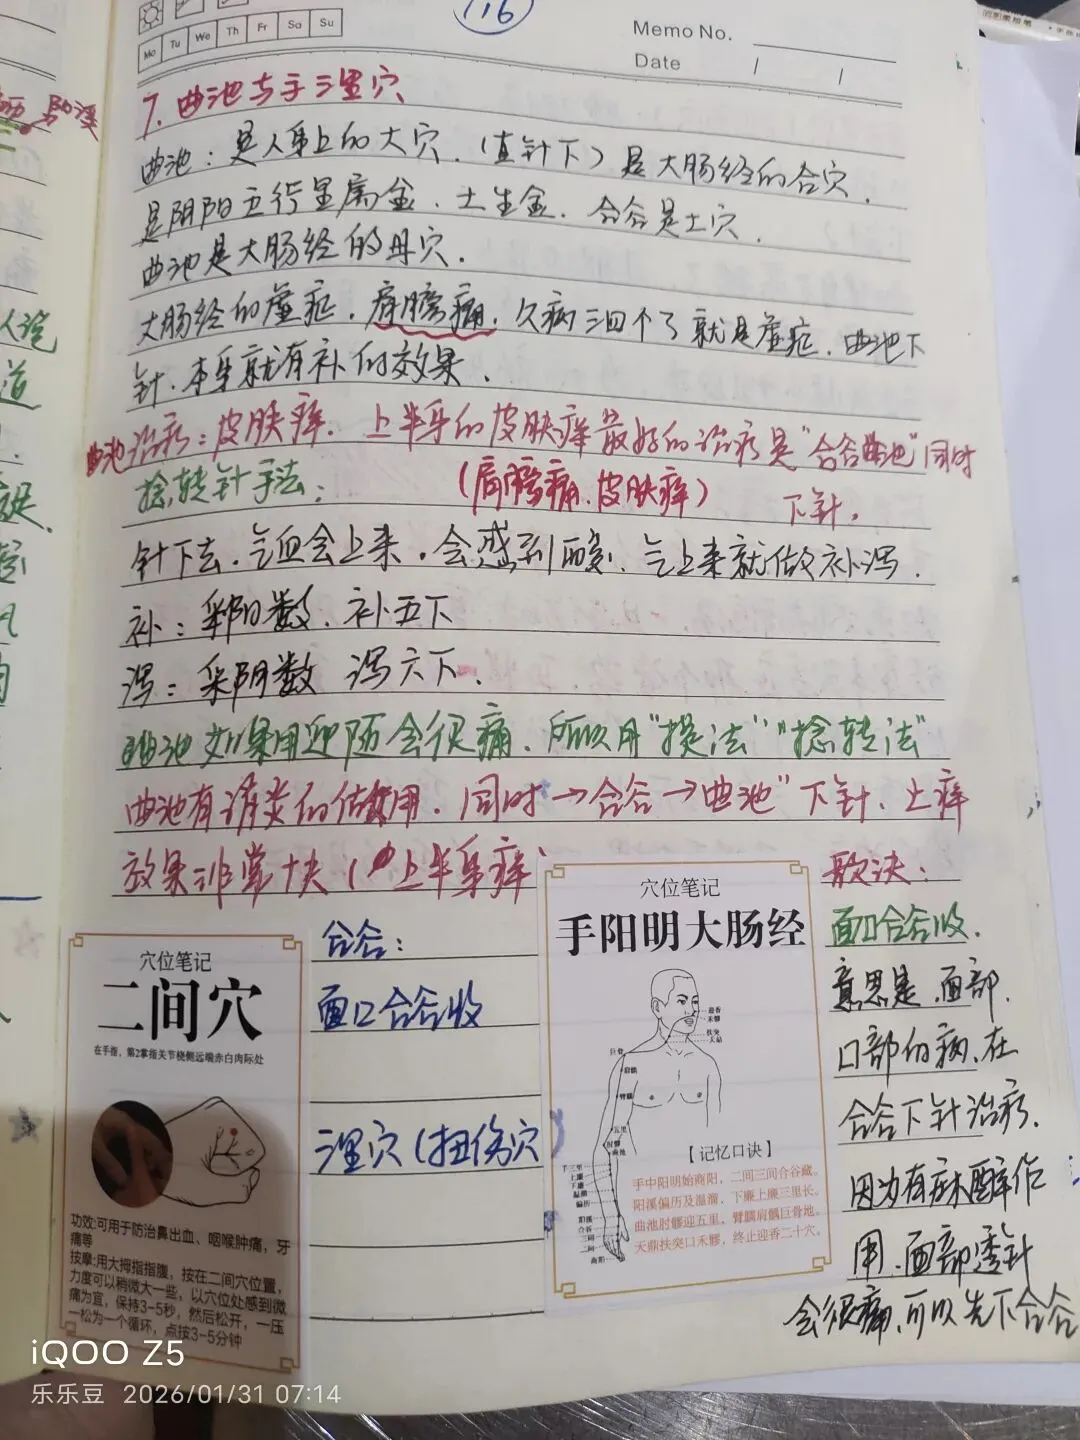 116
Memo No.
Date / /
Mo Tu We Th Fr Sa Su
7. 曲池与手三里穴
曲池：是人身上的大穴．（直针下）是大肠经的合穴．
是阴阳五行里属金．土生金．合谷是土穴．
曲池是大肠经的母穴．
大肠经的虚症．肩膀痛．久病三四个了就是虚症．曲池下
针．本身就有补的效果．
曲池治疗：皮肤痒．上半身的皮肤痒最好的治疗是"合谷曲池"同时
下针．
捻转针手法：（肩膀痛．皮肤痒）
针下去．气血会上来．会感到酸．气上来就做补泻．
补：采阳数．补五下
泻：采阴数 泻六下．
曲池如果用迎随会很痛．所以用"提法""捻转法"
曲池有消炎的作用．同时→合谷→曲池"下针．止痒
效果非常快（上半身痒
穴位笔记
二间穴
在手指，第2掌指关节桡侧远端赤白肉际处
功效:可用于防治鼻出血、咽喉肿痛，牙
痛等
按摩:用大拇指指腹，按在二间穴位置，
力度可以稍微大一些，以穴位处感到微
痛为宜，保持3-5秒，然后松开，一压
一松为一个循环，点按3-5分钟
合谷：
面口合谷收
三里穴（扭伤穴）
穴位笔记
手阳明大肠经
迎香
禾髎
扶突
天鼎
巨骨
肩髃
臂臑
五里
肘髎
曲池
手三里
上廉
下廉
温溜
偏历
阳溪
合谷
三间
二间
商阳
【记忆口诀】
手中阳明始商阳，二间三间合谷藏。
阳溪偏历及温溜，下廉上廉三里长。
曲池肘髎迎五里，臂臑肩髃巨骨地。
天鼎扶突口禾髎，终止迎香二十穴。
歌诀：
面口合谷收．
意思是．面部．
口部的病．在
合谷下针治疗．
因为有麻醉作
用．面部
会很痛．可以先下合谷
iQOO Z5
乐乐豆 2026/01/31 07:14